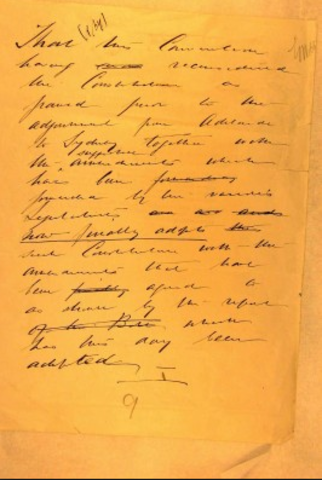 That this Convention
having reconsidered
the Constitution as
passed prior to the
adjournment from Adelaide
to Sydney together with
the suggested amendments which
have been
by the various
Legislatures
now finally adopts the
such Constitution with the
amendments that have
been finally agreed to
as shown by the report
of the Bill which
has this day been
adopted
9